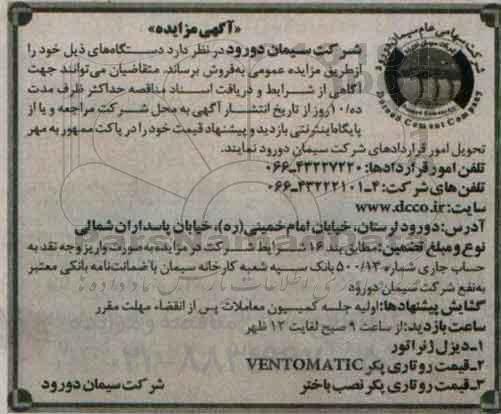 «آگهی مزایده»
شرکت سیمان دورود در نظر دارد دستگاه‌های ذیل خود را
ازطریق مزایده عمومی به‌فروش برساند. متقاضیان می‌توانند جهت
آگاهی از شرایط و دریافت اسناد مناقصه حداکثر ظرف مدت
ده/۱۰روز از تاریخ انتشار آگهی به محل شرکت مراجعه و یا از
پایگاه‌اینترنتی بازدید و پیشنهاد قیمت خود را در پاکت ممهور به مهر
تحویل امور قراردادهای شرکت سیمان دورود نمایند.
تلفن امور قراردادها: ۴۳۲۲۷۲۲۰-۰۶۶
تلفن‌های شرکت: ۴-۴۳۲۲۲۱۰۱-۰۶۶
سایت: www.dcco.ir
آدرس: دورود لرستان، خیابان امام خمینی(ره)، خیابان پاسداران شمالی
نوع و مبلغ تضمین: مطابق بند ۱۶ شرایط شرکت در مزایده به صورت واریز وجه نقد به
حساب جاری شماره ۵۰۰/۱۳ بانک سپه شعبه کارخانه سیمان یا ضمانت‌نامه بانکی معتبر
به‌نفع شرکت سیمان دورود
گشایش پیشنهادها: اولیه جلسه کمیسیون معاملات پس از انقضاء مهلت مقرر
ساعت بازدید: از ساعت ۹ صبح لغایت ۱۲ ظهر
۱-دیزل ژنراتور
۲-قیمت روتاری پکر VENTOMATIC
۳-قیمت روتاری پکر نصب باختر
شرکت سیمان دورود
شرکت سهامی عام سیمان دورود
Dorood Cement Company